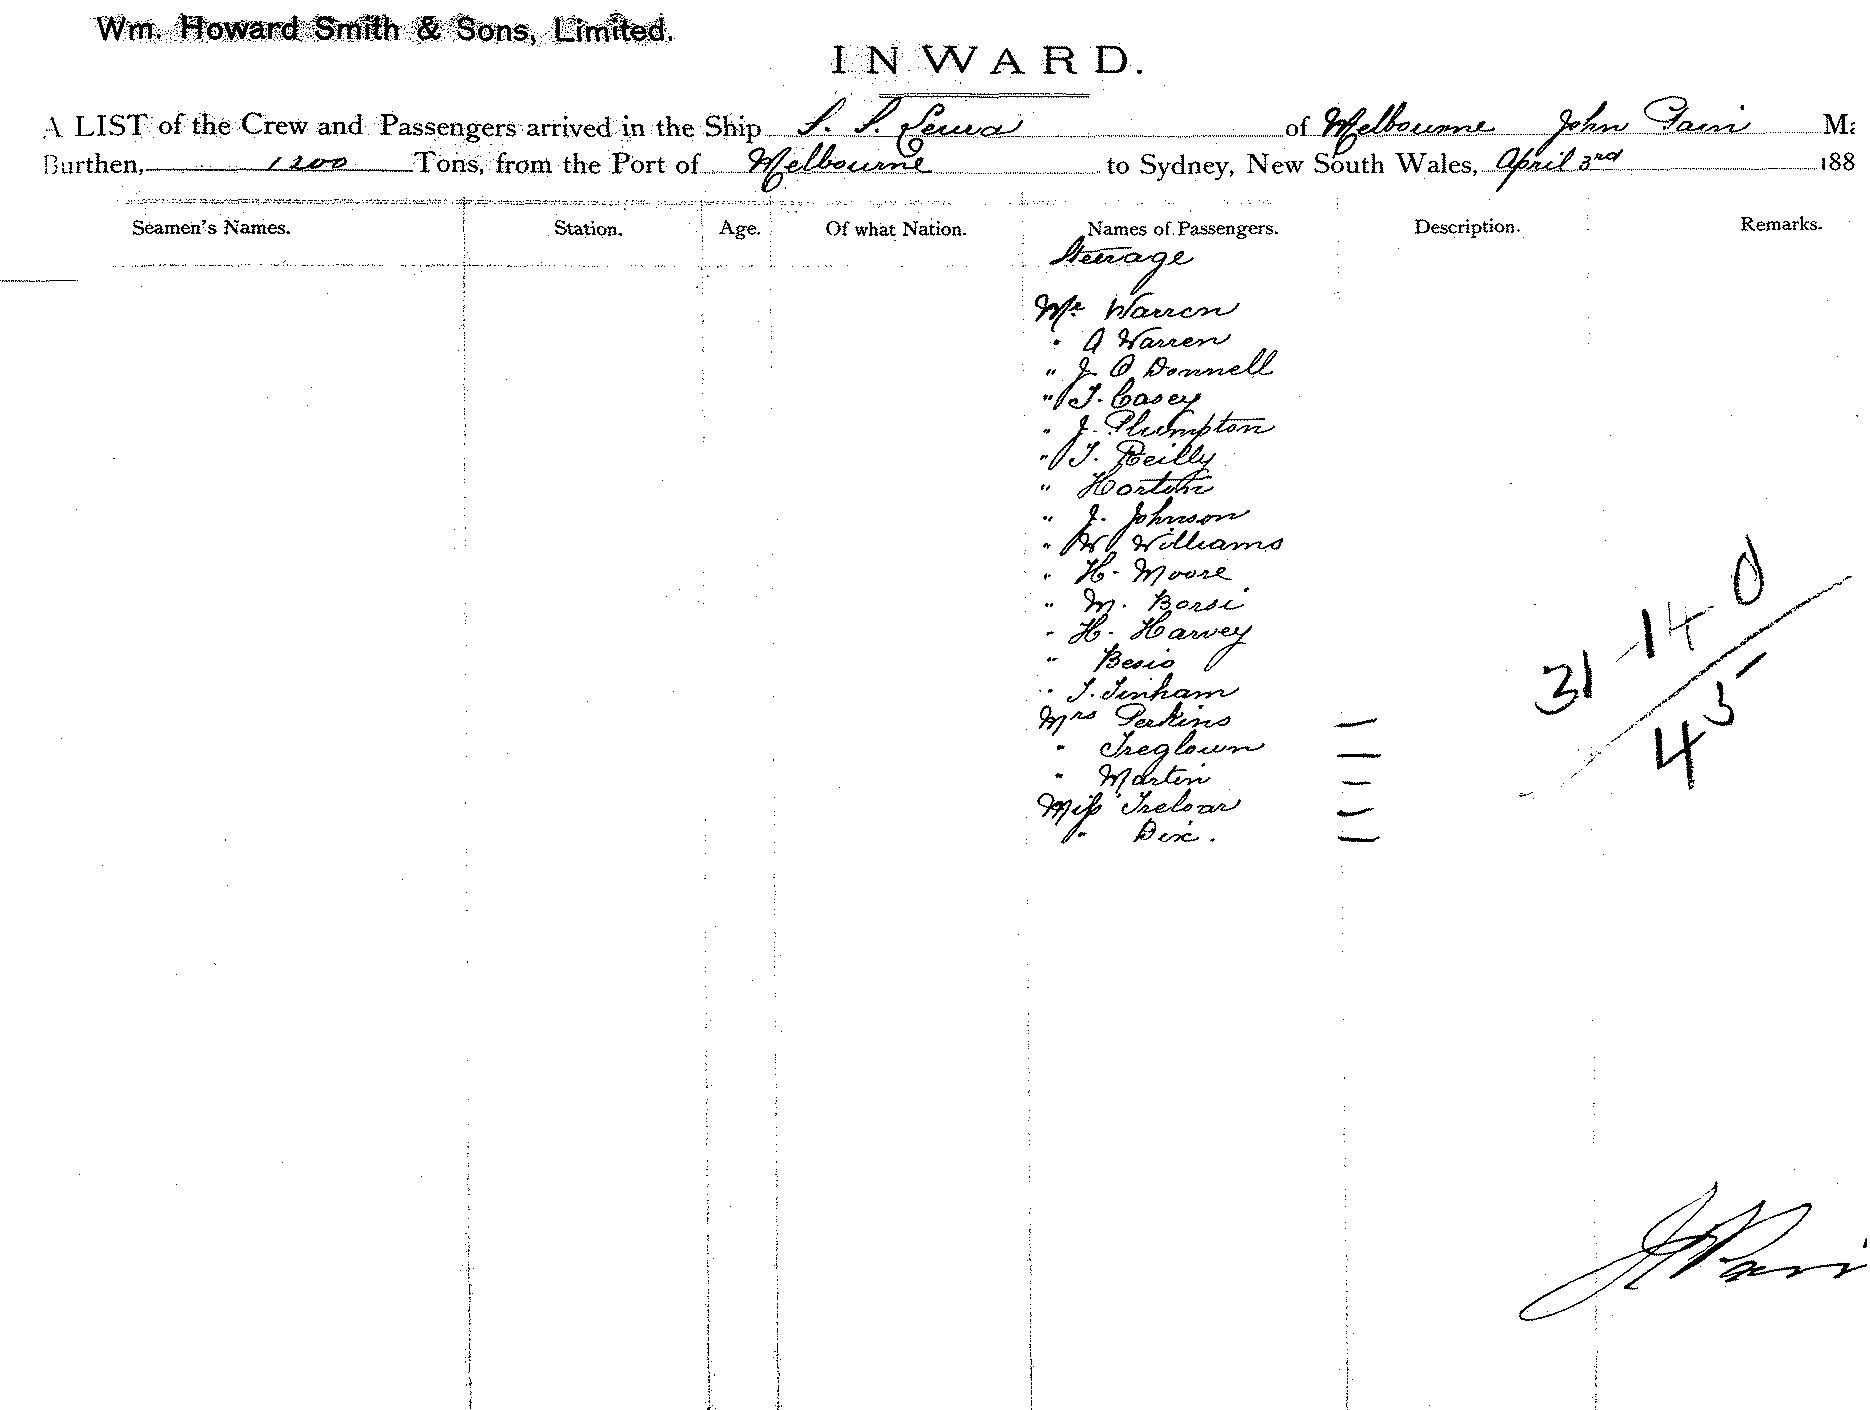 Wm. Howard Smith & Sons, Limited.
INWARD.
A LIST of the Crew and Passengers arrived in the Ship S. S. Leura of Melbourne John Pain Ma
Burthen, 1200 Tons, from the Port of Melbourne to Sydney, New South Wales, April 3rd 188
Seamen's Names. Station. Age. Of what Nation. Names of Passengers. Description. Remarks.
Steerage
Mr. Warren
" A Warren
" J. O Donnell
" T. Casey
" J. Plumpton
" T. Reilly
" Horton
" J. Johnson
" W Williams
" H. Moore
" M. Borsi
" H. Harvey
" Besio
" T. Tinham
Mrs Perkins —
" Treglown —
" Martin —
Miss Treloar —
" Dix. —
31 - 14 - 0
45
J Pain